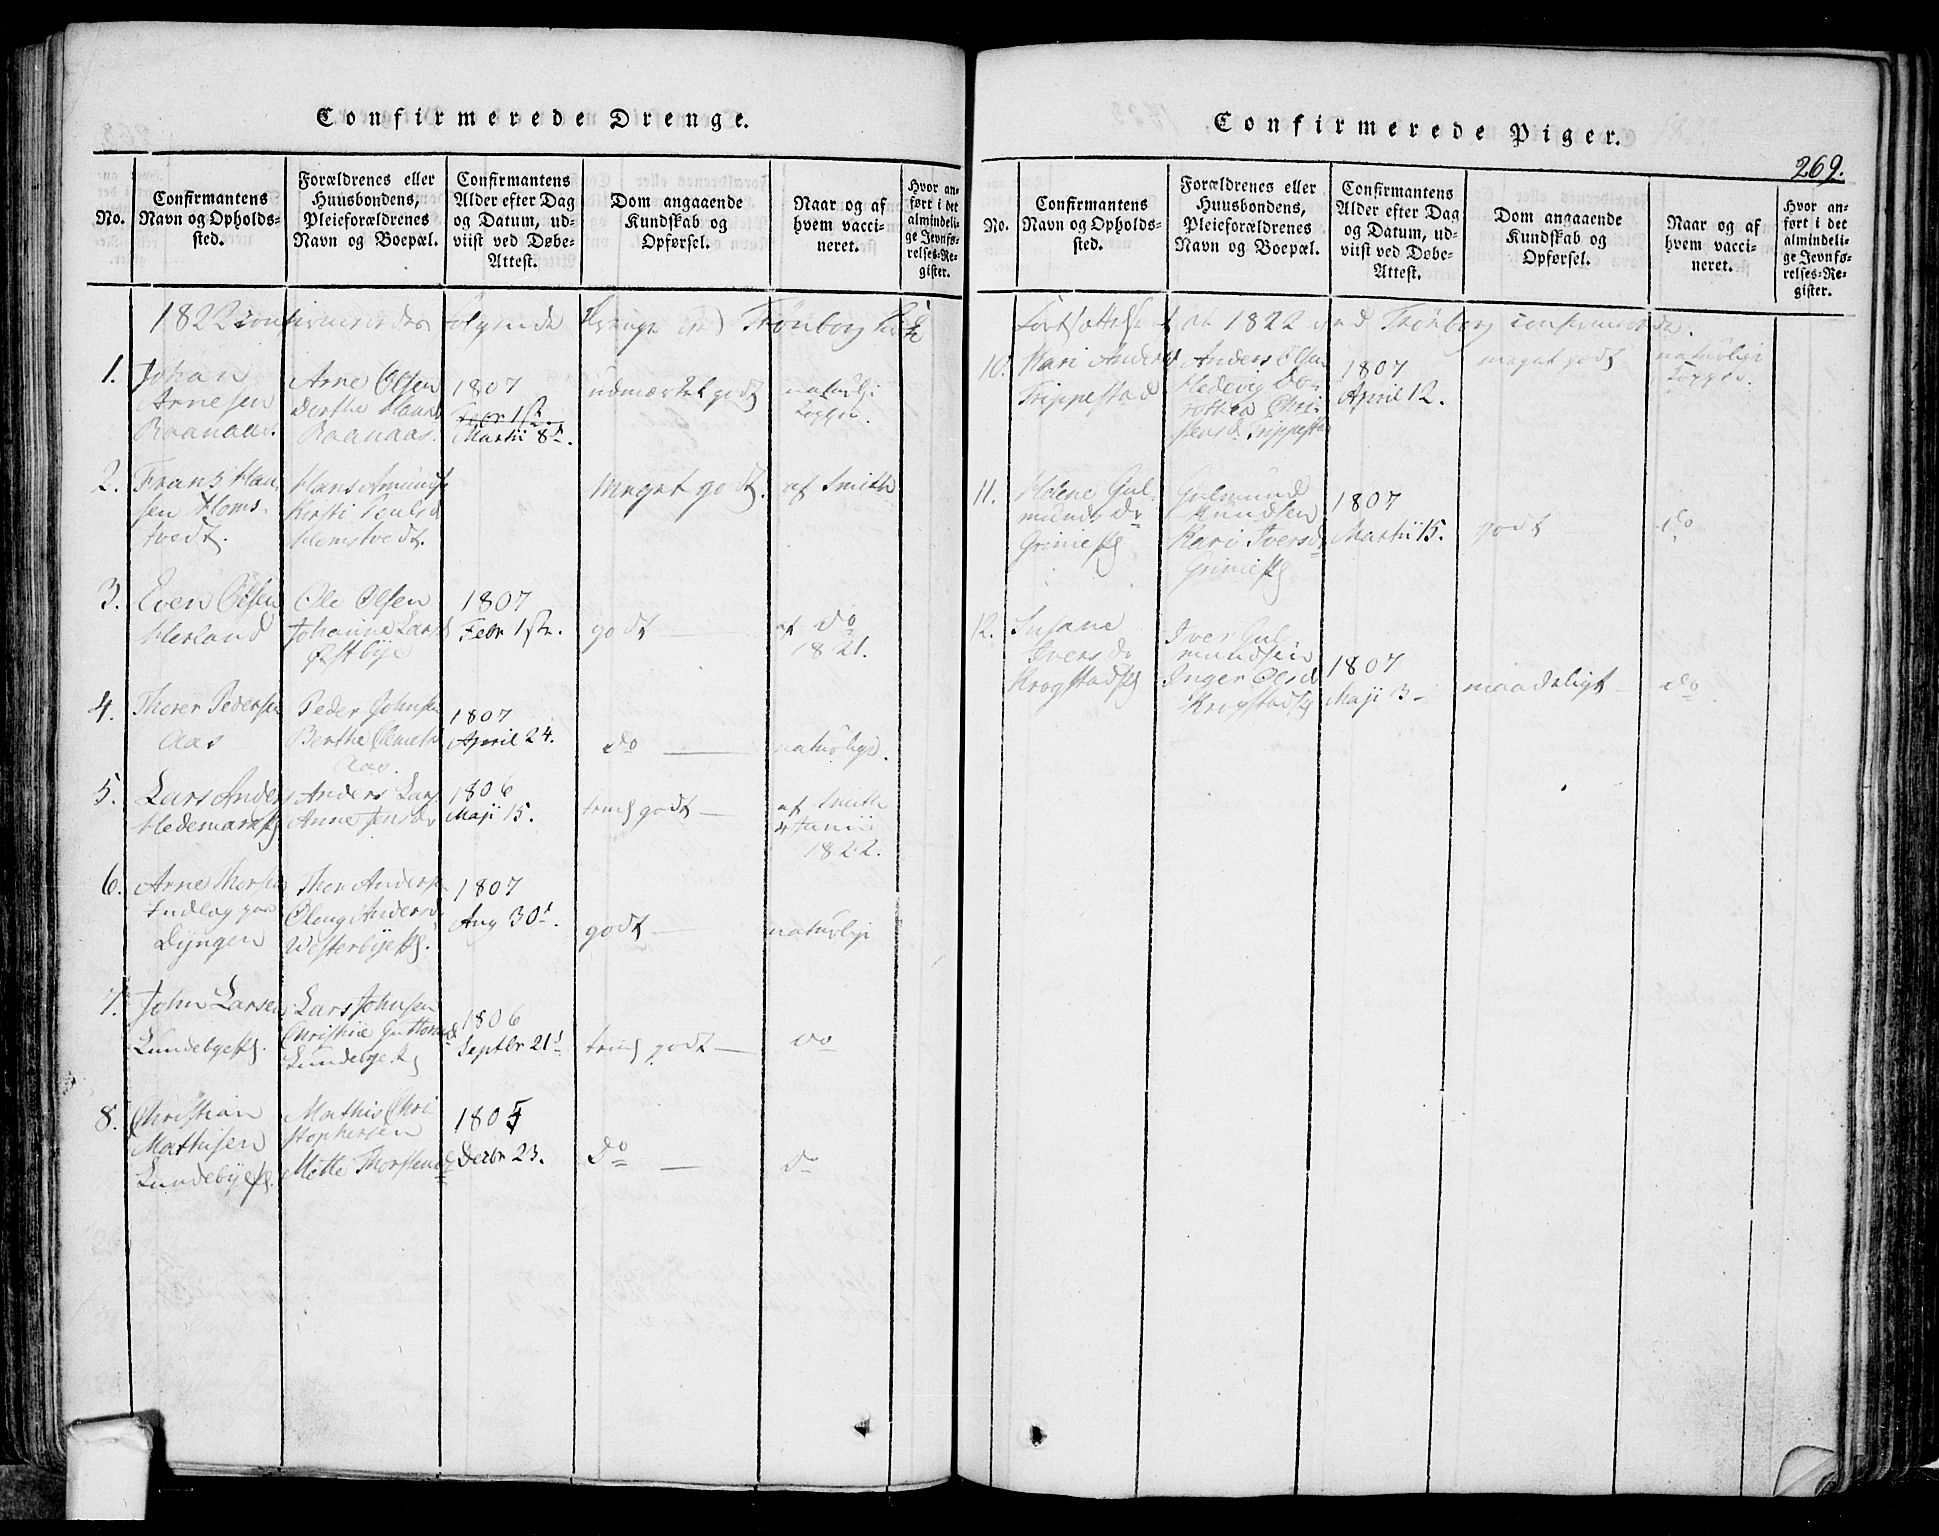 Confirmerede Drenge.
No.
Confirmantens
Navn og Opholds-
sted.
Forældrenes eller
Huusbondens,
Pleieforældrenes
Navn og Boepæl.
Confirmantens
Alder efter Dag
og Datum, ud-
viist ved Døbe-
Attest.
Dom angaaende
Kundskab og
Opførsel.
Naar og af
hvem vacci-
neret.
Hvor an-
ført i det
almindeli-
ge Jevnfø-
relses-Re-
gister.
1822 confirmeredes følgende Drenge i Trönborg Kirke
1.
Johan
Arnesen
Raanaas.
Arne Olsen
Dorthe Hans
Raanaas.
1807
Febr 1ste.
Martii 8d.
udmærket godt
naturlige
Kopper.
2.
Frans Han-
sen Homs-
tvedt.
Hans Amunds
Kersti Pouls
Homstvedt.
Meget godt.
af Smith
3.
Even Olsen
Herland
Ole Olsen
Johanne Lars
Østbye
1807
Febr 1ste.
godt
af do
1821.
4.
Thorer Pedersen
Aas
Peder Johnsen
Berthe
Aas.
1807
April 24.
do
naturlige.
5.
Lars Anders
Hedemark
Anders Lars
Anne Jensdr
1806
Maji 15.
godt
af Smith
4 Junii
1822.
6.
Arne Thorsen
Indlag paa
Lyngen
Thor Anders
Anders
Westerbye
1807
Aug 30d.
godt
naturlige
7.
John Larsen
Lundebye
Lars Johnsen
Christine Guttorms
Lundebye
1806
Septbr 21d
godt
do
8.
Christian
Mathisen
Lundebye
Mathis Chri
stophersen
Mette Thorstensd
1805
Decbr 23.
Do
do
Confirmerede Piger.
269.
No.
Confirmantens
Navn og Opholds-
sted.
Forældrenes eller
Huusbondens,
Pleieforældrenes
Navn og Boepæl.
Confirmantens
Alder efter Dag
og Datum, ud-
viist ved Døbe-
Attest.
Dom angaaende
Kundskab og
Opførsel.
Naar og af
hvem vacci-
neret.
Hvor an-
ført i det
almindeli-
ge Jevnfø-
relses-Re-
gister.
Fortsættelse af de 1822 ved Trönborg confirmerede.
10.
Kari Anders
Trippestad
Anders Olsen
Hedevig Do-
rothea Chri-
stensd Trippestad
1807
April 12.
meget godt
naturlige
Kopper.
11.
Helene Gul-
munds dr
Grime
Gulmund
Amundsen
Kari Iversdr
Grime
1807
Martii 15.
godt
do
12.
Susane
Ivers dr
Krogstad
Iver Gul-
mundsen
Inger Olsd
Krogstad
1807
Maji 3
maadeligt
do